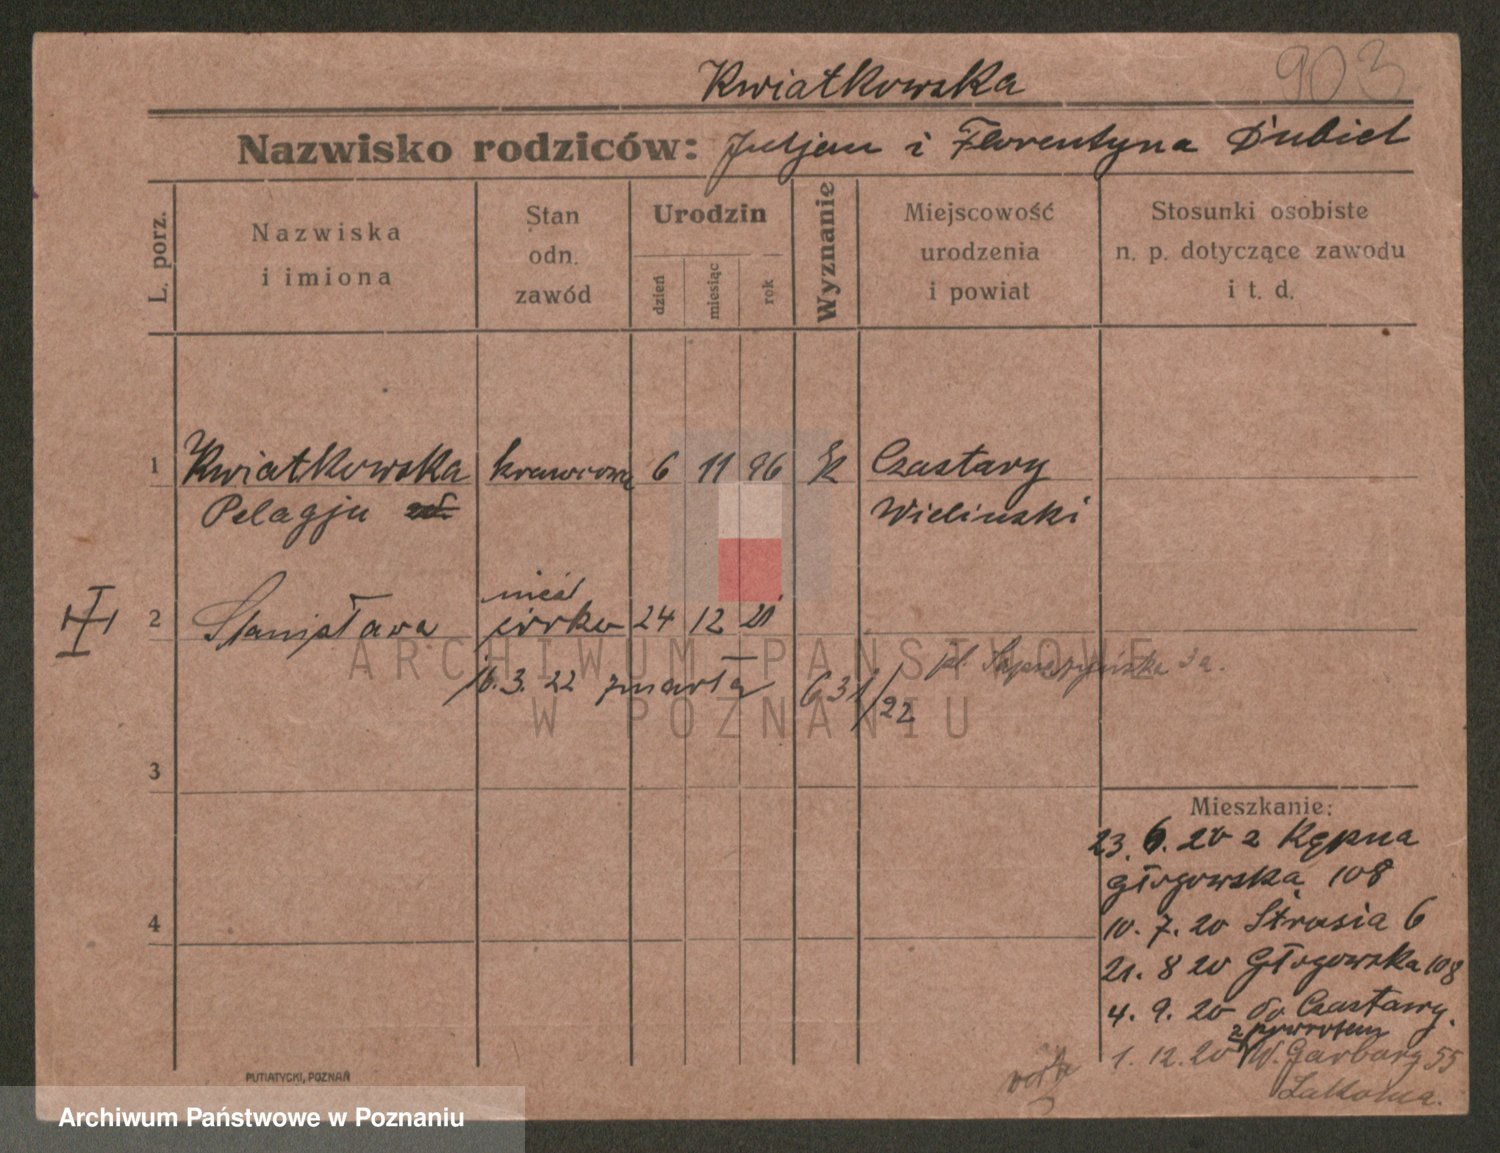 903
Kwiatkowska
Nazwisko rodziców: Juljan i Florentyna Dubiel
L. porz.
Nazwiska
i imiona
Stan
odn.
zawód
Urodzin
dzień
miesiąc
rok
Wyznanie
Miejscowość
urodzenia
i powiat
Stosunki osobiste
n. p. dotyczące zawodu
i t. d.
1 Kwiatkowska krawcowa 6 11 96 k Czastary
Pelagja Wieluński
2 Stanisława nieśl córka 24 12 21
16.3.22 zmarła 631/22
3
4
Mieszkanie:
23. 6. 20 z Kępna
Głogowska 108
10. 7. 20 Strusia 6
21. 8 20 Głogowska 108
4. 9. 20 do Czastary.
z powrotem
1. 12. 20 W. Garbary 55
PUTIATYCKI, POZNAŃ
ARCHIWUM PAŃSTWOWE
W POZNANIU
Archiwum Państwowe w Poznaniu